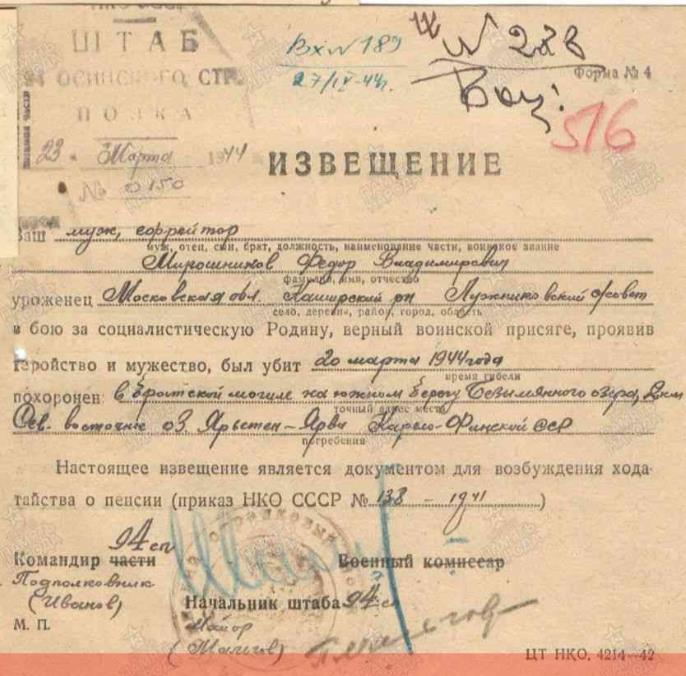 НКО СССР
ШТАБ
94 ОСИНСКОГО СТР.
ПОЛКА
23 " Марта 1944
№ 0150
Вх№ 189
27/IV-44г.
№ 288
Форма № 4
516
ИЗВЕЩЕНИЕ
Ваш муж, ефрейтор
муж, отец, сын, брат, должность, наименование части, воинское звание
Мирошников Федор Владимирович
фамилия, имя, отчество
уроженец Московская обл. Каширский рн Лужниковский с/совет
село, деревня, район, город, область
в бою за социалистическую Родину, верный воинской присяге, проявив
геройство и мужество, был убит 20 марта 1944 года
время гибели
похоронен в братской могиле на южном берегу Безимянного озера, 2 км
точный адрес места
Сев. восточнее оз. Ярьстен-Ярви Карело-Финской ССР
погребения
Настоящее извещение является документом для возбуждения хода-
тайства о пенсии (приказ НКО СССР № 138 – 1941)
94 сп
Командир части Военный комиссар
Подполковник
(Иванов) Начальник штаба 94 сп
М. П. Майор
(Малигов)
ЦТ НКО. 4214—42